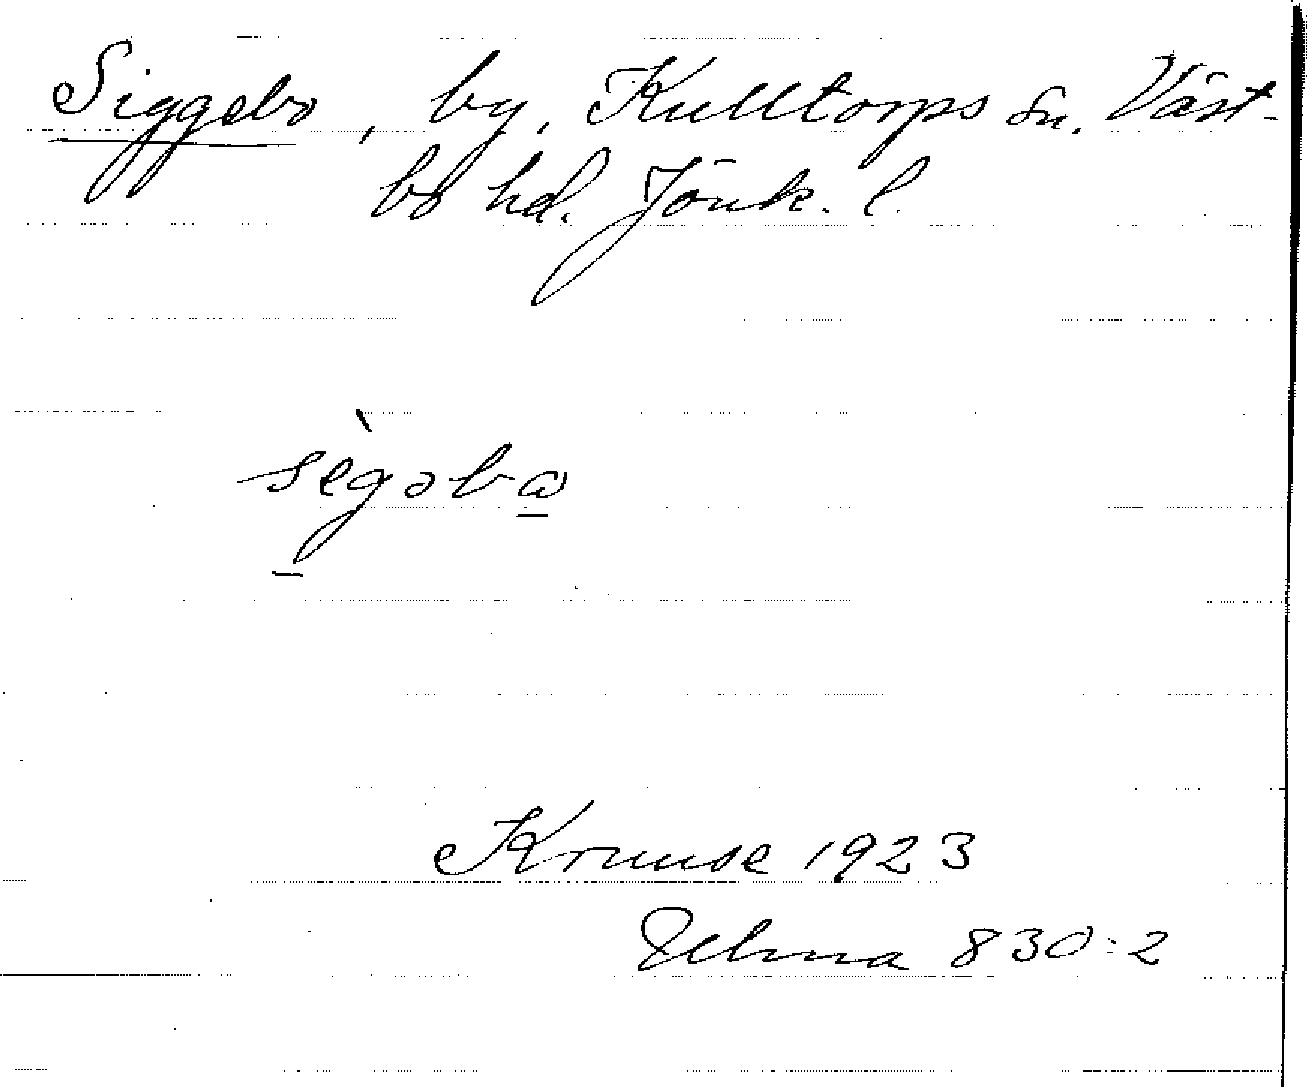 Siggebo, by, Kulltorps sn. Väst-
bo hd. Jönk. l.
sègəbω
Kruuse 1923
Ulma 830:2